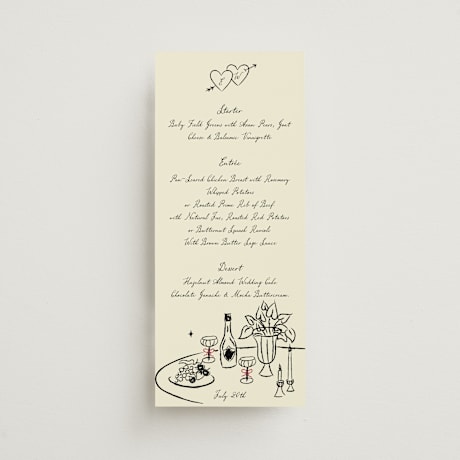 Starter
Baby Field Greens with Asian Pears, Goat
Cheese & Balsamic Vinaigrette
Entrée
Pan-Seared Chicken Breast with Rosemary
Whipped Potatoes
or Roasted Prime Rib of Beef
with Natural Jus, Roasted Red Potatoes
or Butternut Squash Ravioli
With Brown Butter Sage Sauce
Dessert
Hazelnut Almond Wedding Cake
Chocolate Ganache & Mocha Buttercream.
July 20th